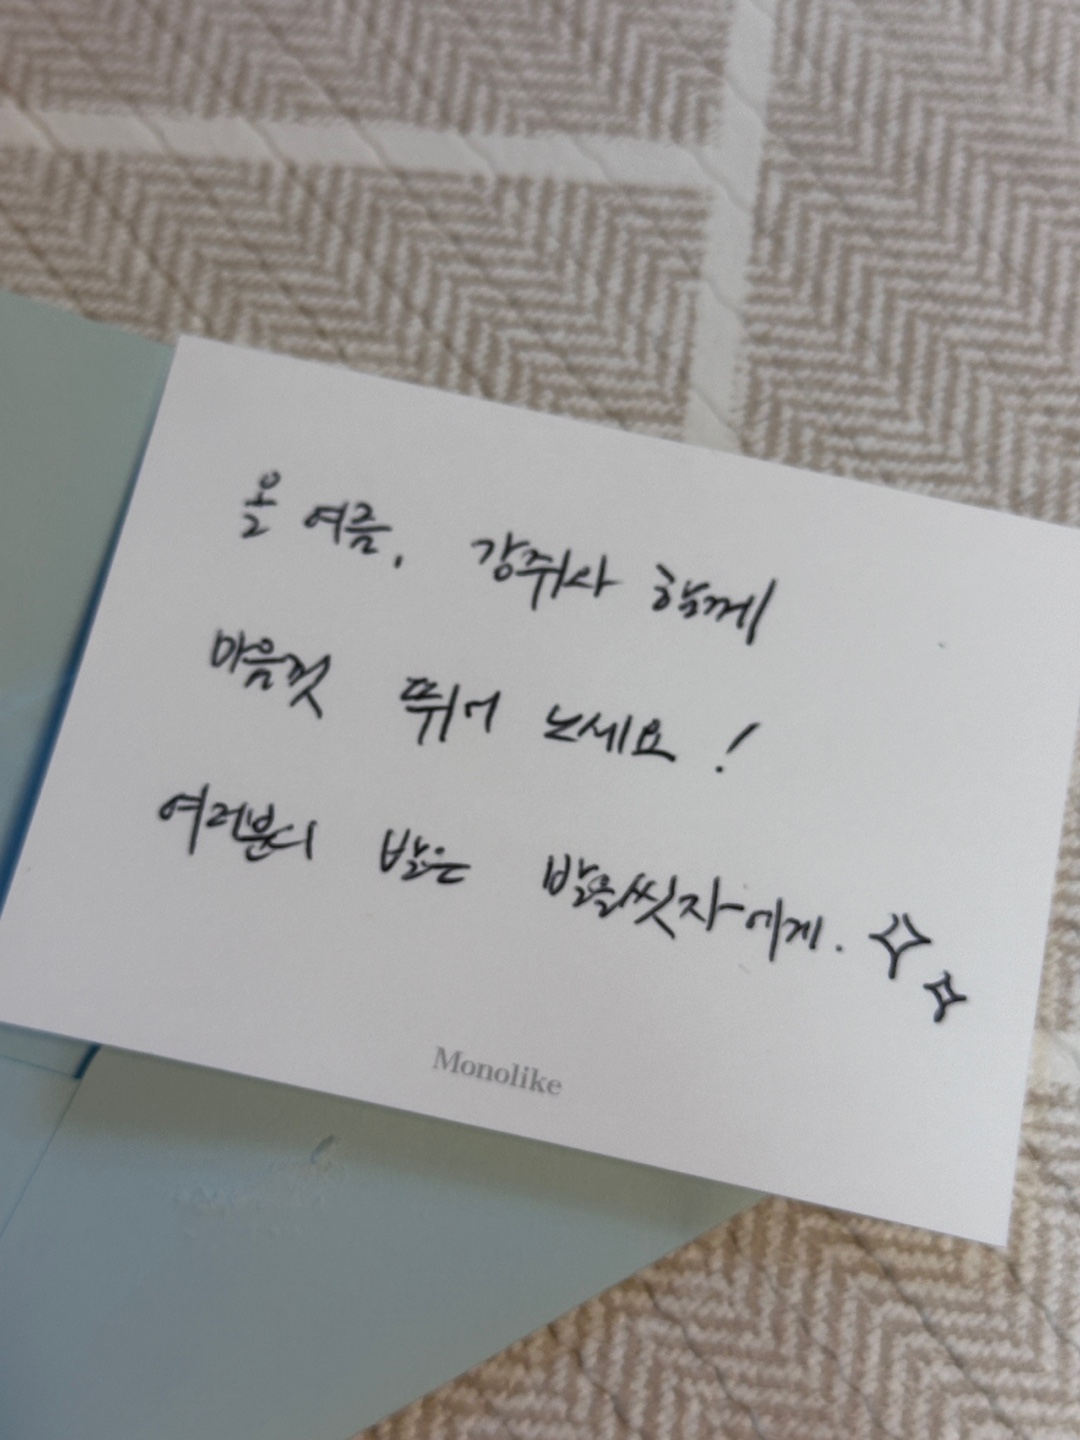 올 여름, 강쥐와 함께
마음껏 뛰어 노세요!
여러분의 발은 발을씻자에게.
Monolike